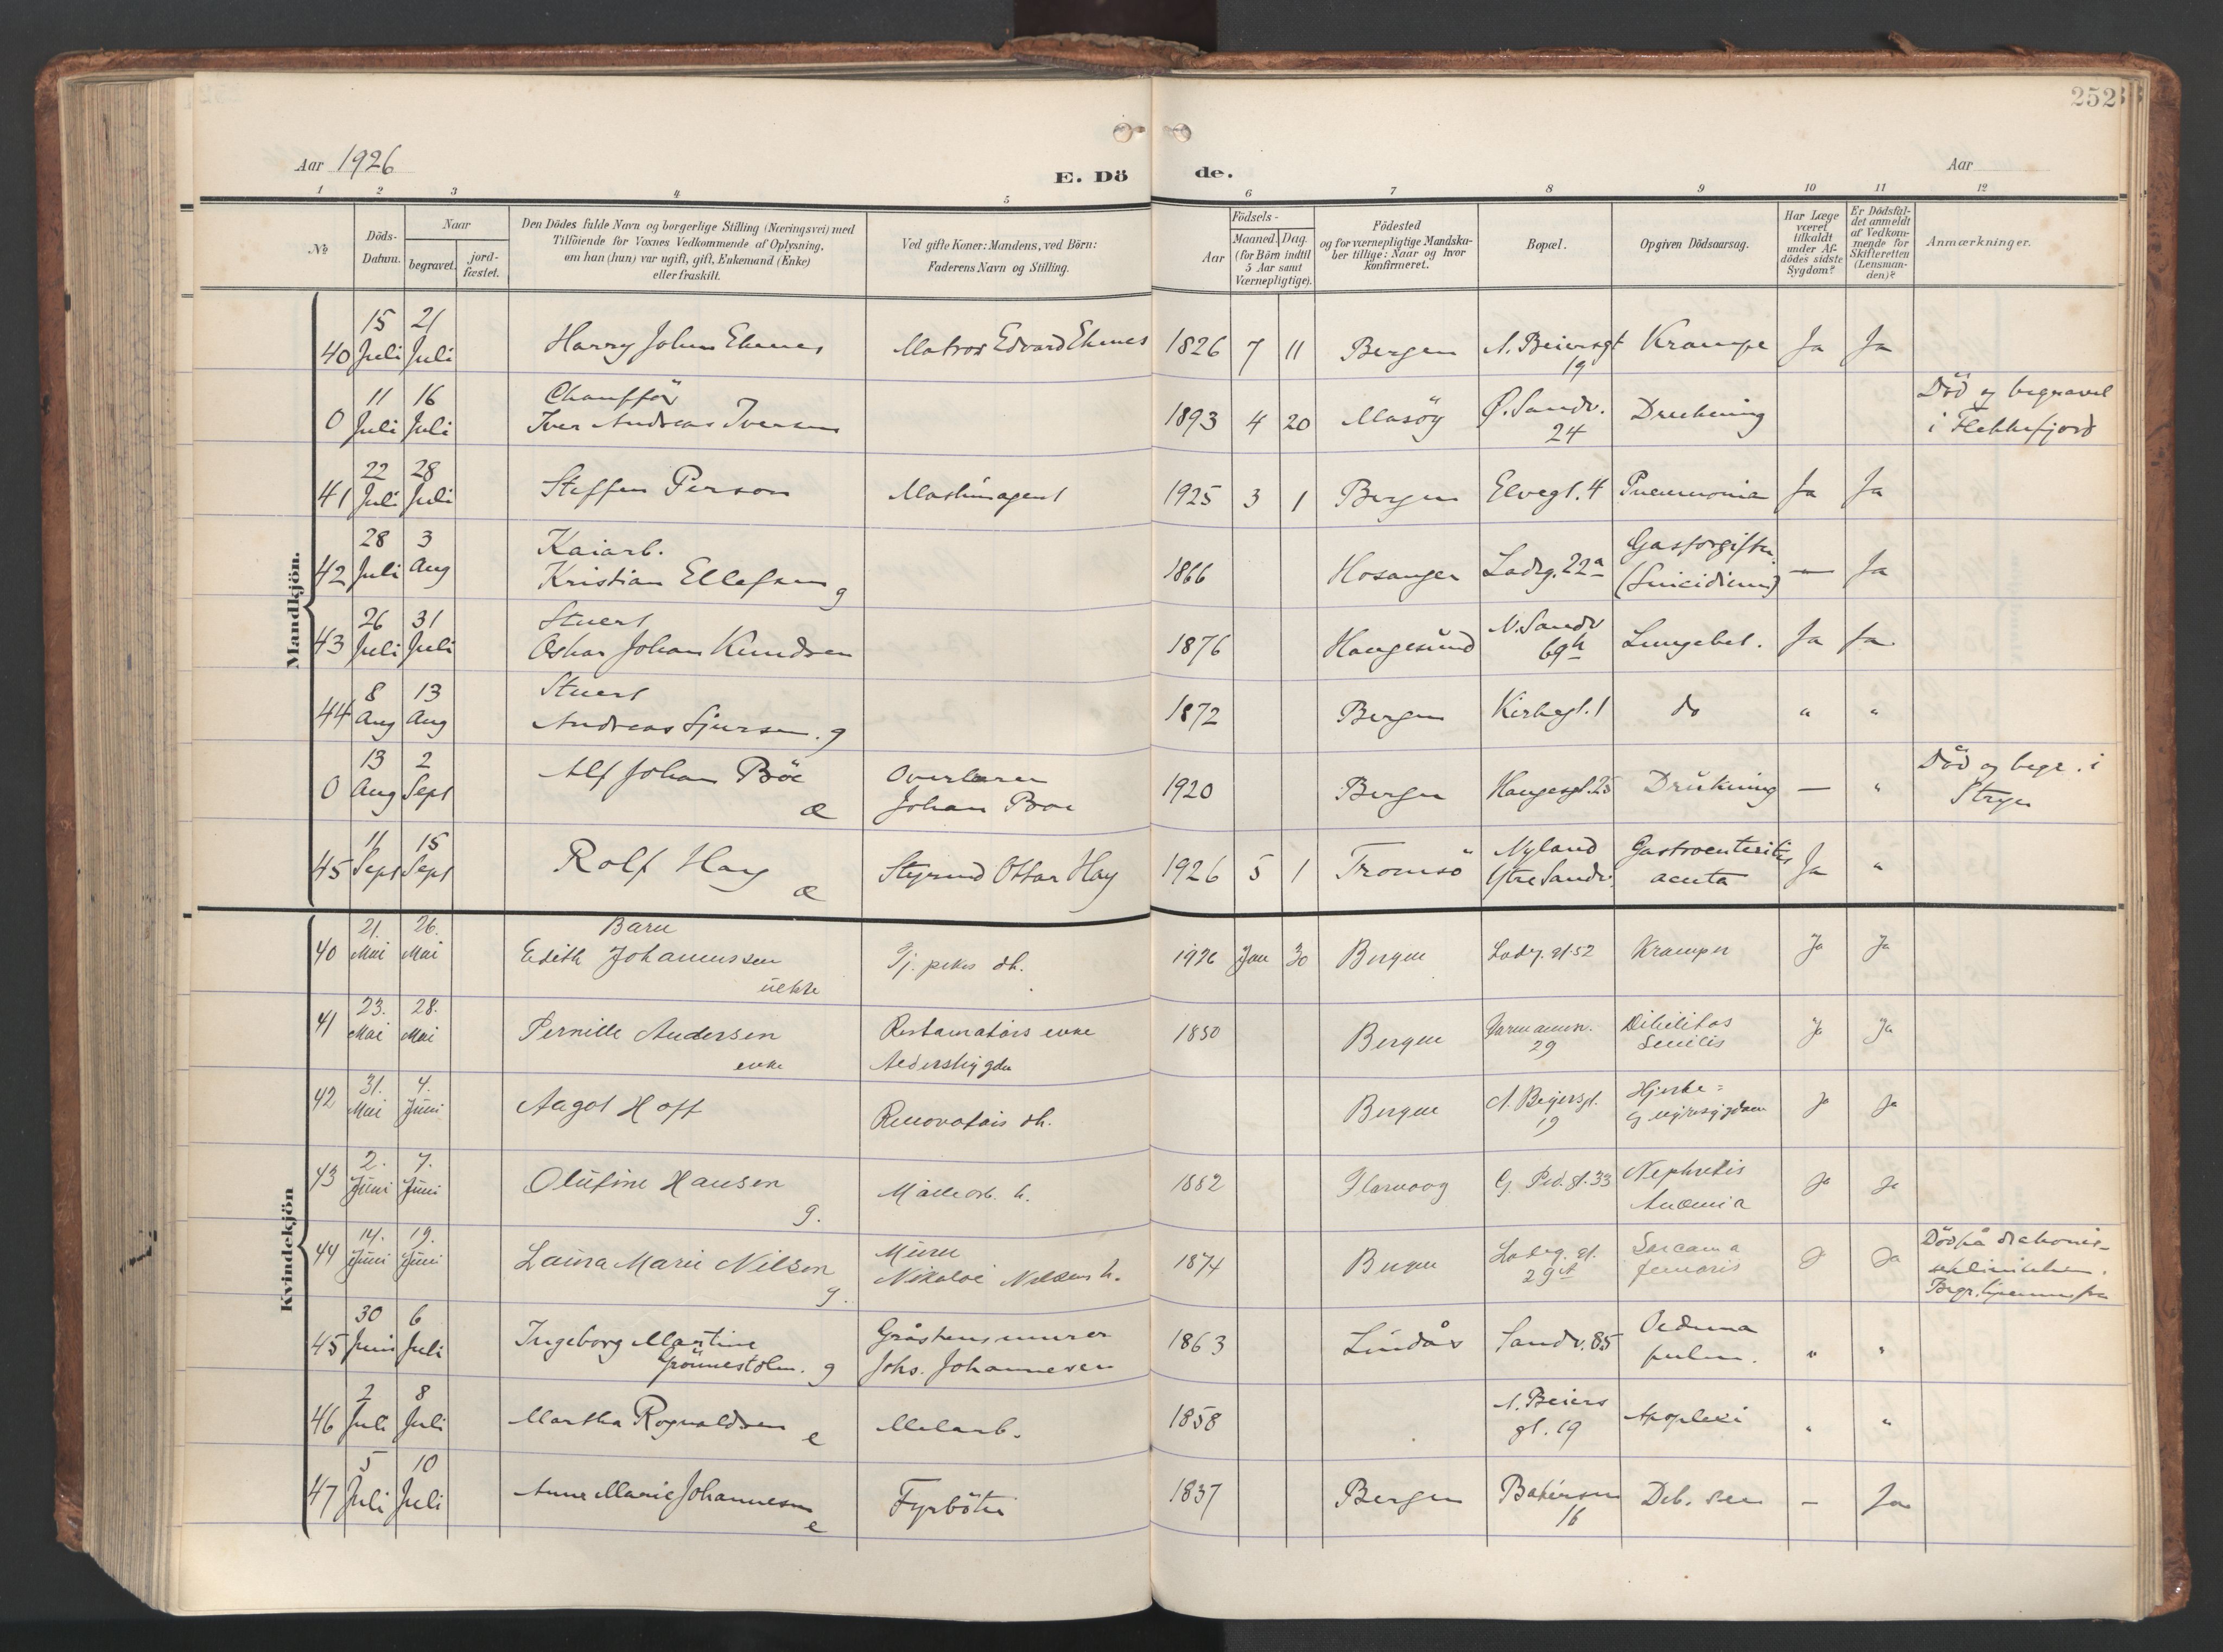 252
Aar 1926
E. Dö de.
Aar
1 2 3 4 5 6 7 8 9 10 11 12
№
Döds-Datum.
Naar
begravet.
jord-fæstet.
Den Dödes fulde Navn og borgerlige Stilling (Næringsvei) med
Tilföiende for Voxnes Vedkommende af Oplysning,
om han (hun) var ugift, gift, Enkemand (Enke)
eller fraskilt.
Ved gifte Koner: Mandens, ved Börn:
Faderens Navn og Stilling.
Födsels-
Aar
Maaned. Dag.
(for Börn indtil
5 Aar samt
Værnepligtige).
Födested
og for værnepligtige Mandska-
ber tillige: Naar og hvor
konfirmeret.
Bopæl.
Opgiven Dödsaarsag.
Har Læge
været
tilkaldt
under Af-
dödes sidste
Sygdom?
Er Dödsfal-
det anmeldt
af Vedkom-
mende for
Skifteretten
(Lensman-
den)?
Anmærkninger.
Mandkjön.
40 15 Juli 21 Juli Harry Johan Matros Edvard 1826 7 11 Bergen N. Beiersgt 19 Krampe Ja Ja
0 11 Juli 16 Juli Chaufför
Iver Andreas Iversen 1893 4 20 Masöy Ø. Sandv. 24 Drukning Död og begravet
i Flekkefjord
41 22 Juli 28 Juli Steffen Person Maskinagent 1925 3 1 Bergen Elvegt. 4 Pneumonia Ja Ja
42 28 Juli 3 Aug Kaiarb.
Kristian Ellefsen g 1866 Hosanger Ladeg. 22a Gasforgiftn.
(Suicidium) — Ja
43 26 Juli 31 Juli Stuert
Oskar Johan Knudsen 1876 Haugesund N. Sandv 69 Lungebet. Ja Ja
44 8 Aug 13 Aug Stuert
Andreas Sjursen. g 1872 Bergen Kirkegt. 1 do " "
0 13 Aug 2 Sept Alf Johan Böe æ Overlærer
Johan Böe 1920 Bergen Haugesgt. 25 Drukning — " Död og begr. i
Stryn
45 11 Sept 15 Sept Rolf Hay æ Styrmd Ottar Hay 1926 5 1 Tromsö Nyland
Ytre Sandv. Gastroenteritis
acuta Ja "
Kvindekjön
40 21. Mai 26. Mai Barn
Edith Johannessen
uekte pikes dh. 1926 Jan 30 Bergen Ladeg. gt 52 Kramper Ja Ja
41 23. Mai 28. Mai Pernille Andersen
enke Restauratörs enke
1850 Bergen 29 Debilitas
Senilis Ja Ja
42 31. Mai 4. Juni Aagot Hoff Renovatörs dh. Bergen N. Beyersgt. 19 Hjerte=
og nyresygdom Ja Ja
43 2. Juni 7. Juni Olufine Hansen
g. h. 1882 G. Ped. gt. 33 Nephretis
Anæmia Ja Ja
44 14. Juni 19. Juni Laura Marie Nilsen
g. Murer
Nikolai Nilsens h. 1874 Bergen Ladeg. gt. 29 A Sarcoma
femoris Ja Ja Död på

45 30 Juni 6 Juli Ingeborg Martine
Grönnestölen. g Gråstensmurer
Johs. Johannesen 1863 Lindås Sandv. 85 Oedema
pulm. " "
46 2 Juli 8 Juli Martha Rognaldsen e 1858 N. Beiers
gt. 19 Apoplexi " "
47 5 Juli 10 Juli Anne Marie Johannesen
e Fyrböter 1837 Bergen 16 Deb. sen — Ja